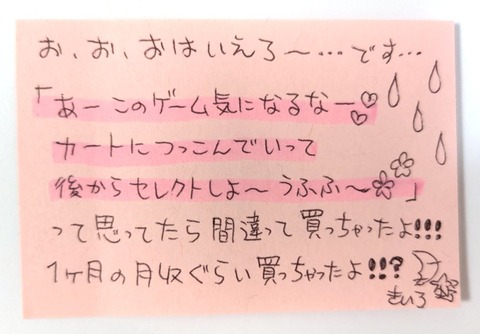 お、お、おはいえろ〜…です…
「あー このゲーム気になるなー♡♡
カートにつっこんでいって
後からセレクトしよ〜 うふふ〜✿✿」
って思ってたら間違って買っちゃったよ!!!
1ヶ月の月収ぐらい買っちゃったよ!!?
きいろ